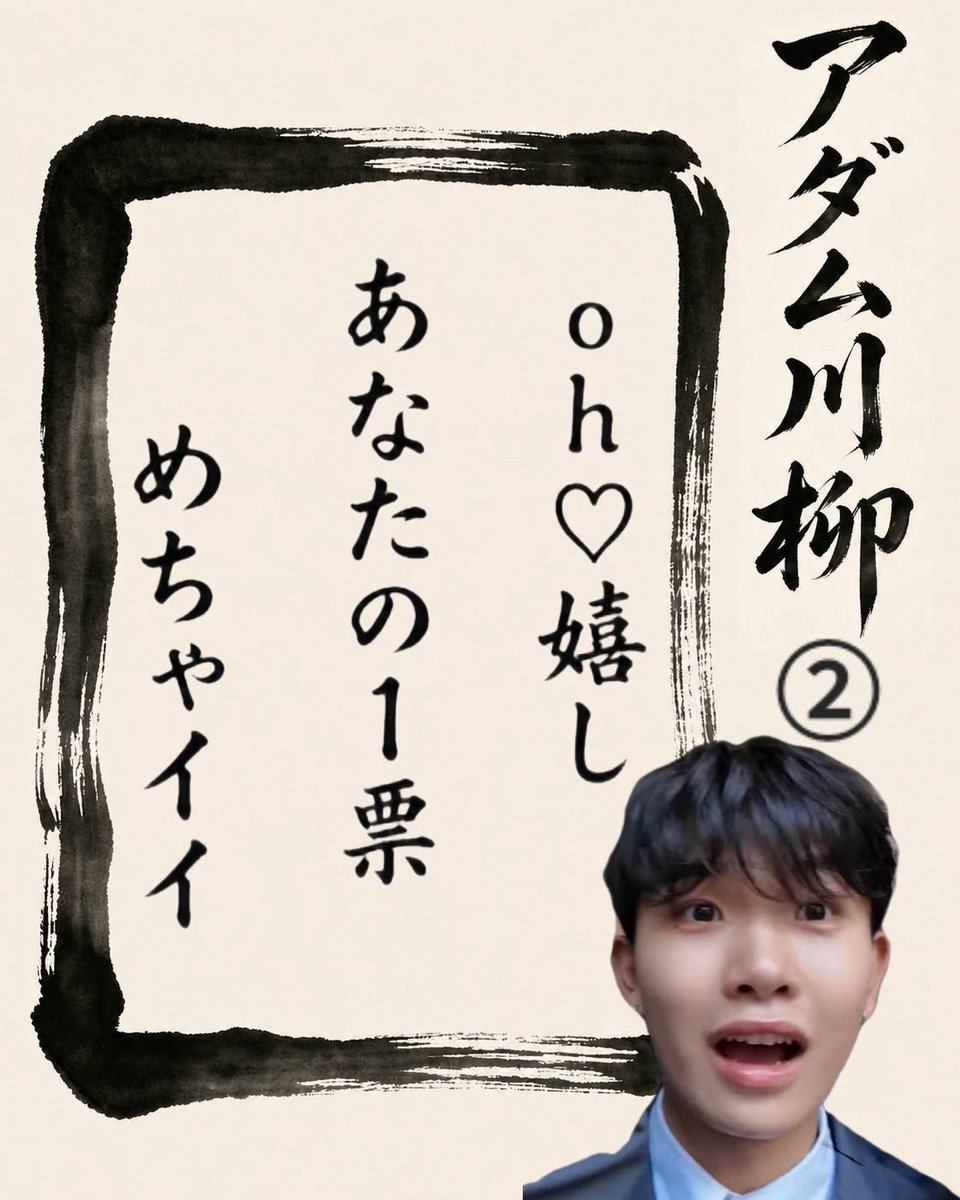 アダム川柳②
oh♡嬉し
あなたの1票
めちゃイイ